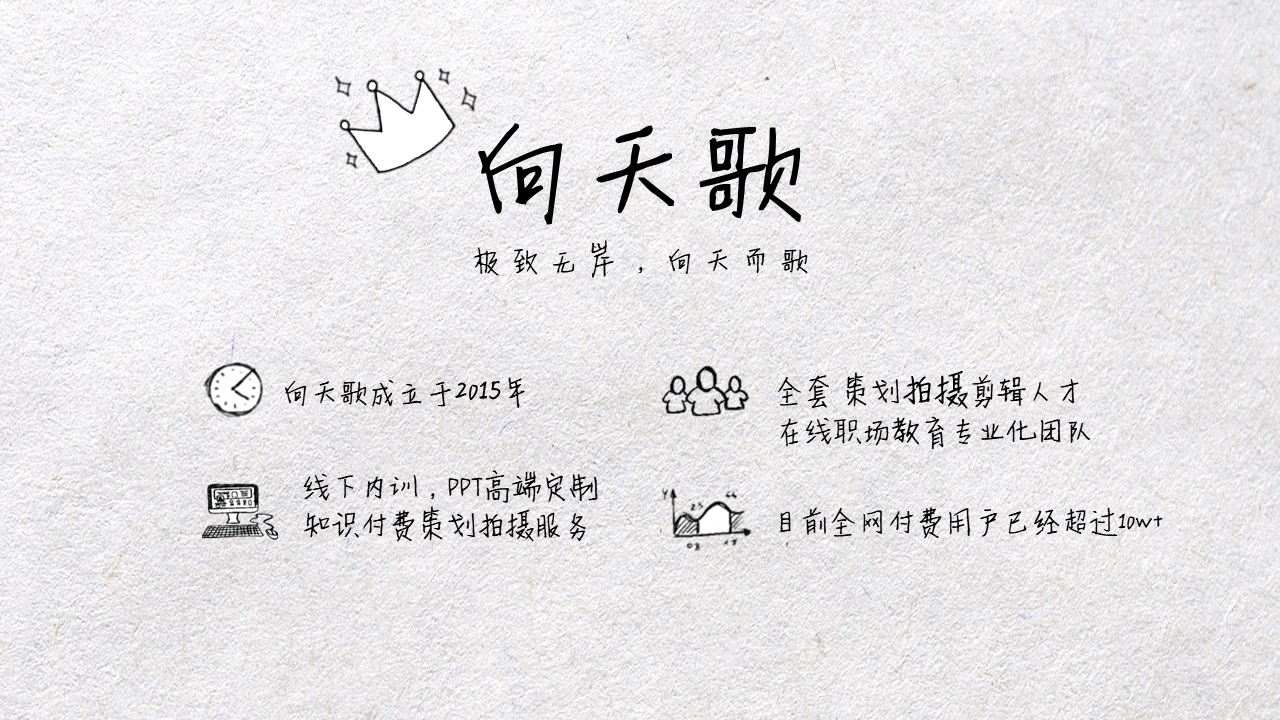 向天歌
极致无岸，向天而歌
向天歌成立于2015年
全套 策划拍摄剪辑人才
在线职场教育专业化团队
线下内训，PPT高端定制
知识付费策划拍摄服务
目前全网付费用户已经超过10w+